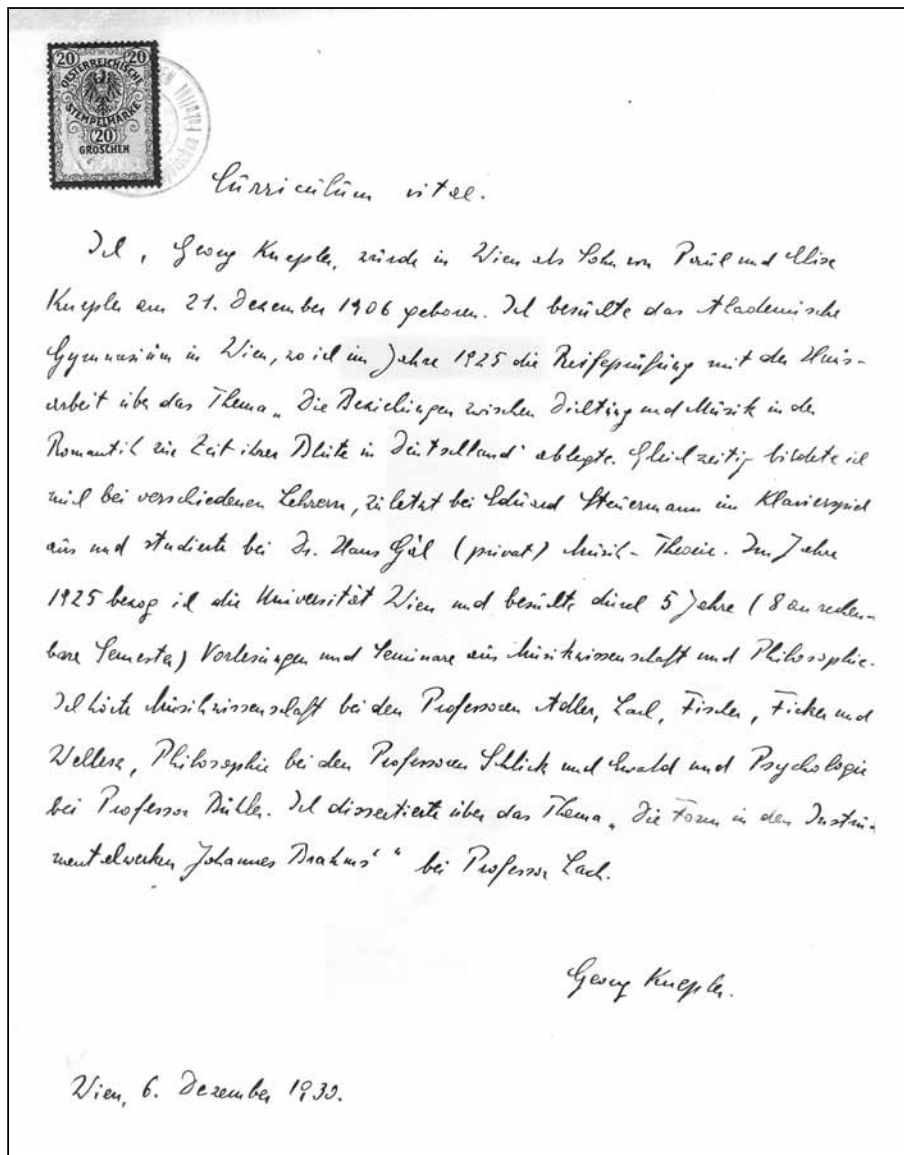 20 20
OESTERREICHISCHE
STEMPELMARKE
20
GROSCHEN
Curriculum vitae.
Ich, Georg Knepler, wurde in Wien als Sohn von Paul und Elise
Knepler am 21. Dezember 1906 geboren. Ich besuchte das Akademische
Gymnasium in Wien, wo ich im Jahre 1925 die Reifeprüfung mit der Haus-
arbeit über das Thema „Die Beziehungen zwischen Dichtung und Musik in der
Romantik zur Zeit ihrer Blüte in Deutschland" ablegte. Gleichzeitig bildete ich
mich bei verschiedenen Lehrern, zuletzt bei Eduard Steuermann im Klavierspiel
aus und studierte bei Dr. Hans Gál (privat) Musik-Theorie. Im Jahre
1925 bezog ich die Universität Wien und besuchte durch 5 Jahre (8 anrechen-
bare Semester) Vorlesungen und Seminare aus Musikwissenschaft und Philosophie.
Ich hörte Musikwissenschaft bei den Professoren Adler, Lach, Fischer, Ficker und
Wellesz, Philosophie bei den Professoren Schlick und Ewald und Psychologie
bei Professor Bühler. Ich dissertierte über das Thema „Die Form in den Instru-
mentalwerken Johannes Brahms'" bei Professor Lach.
Georg Knepler.
Wien, 6. Dezember 1930.